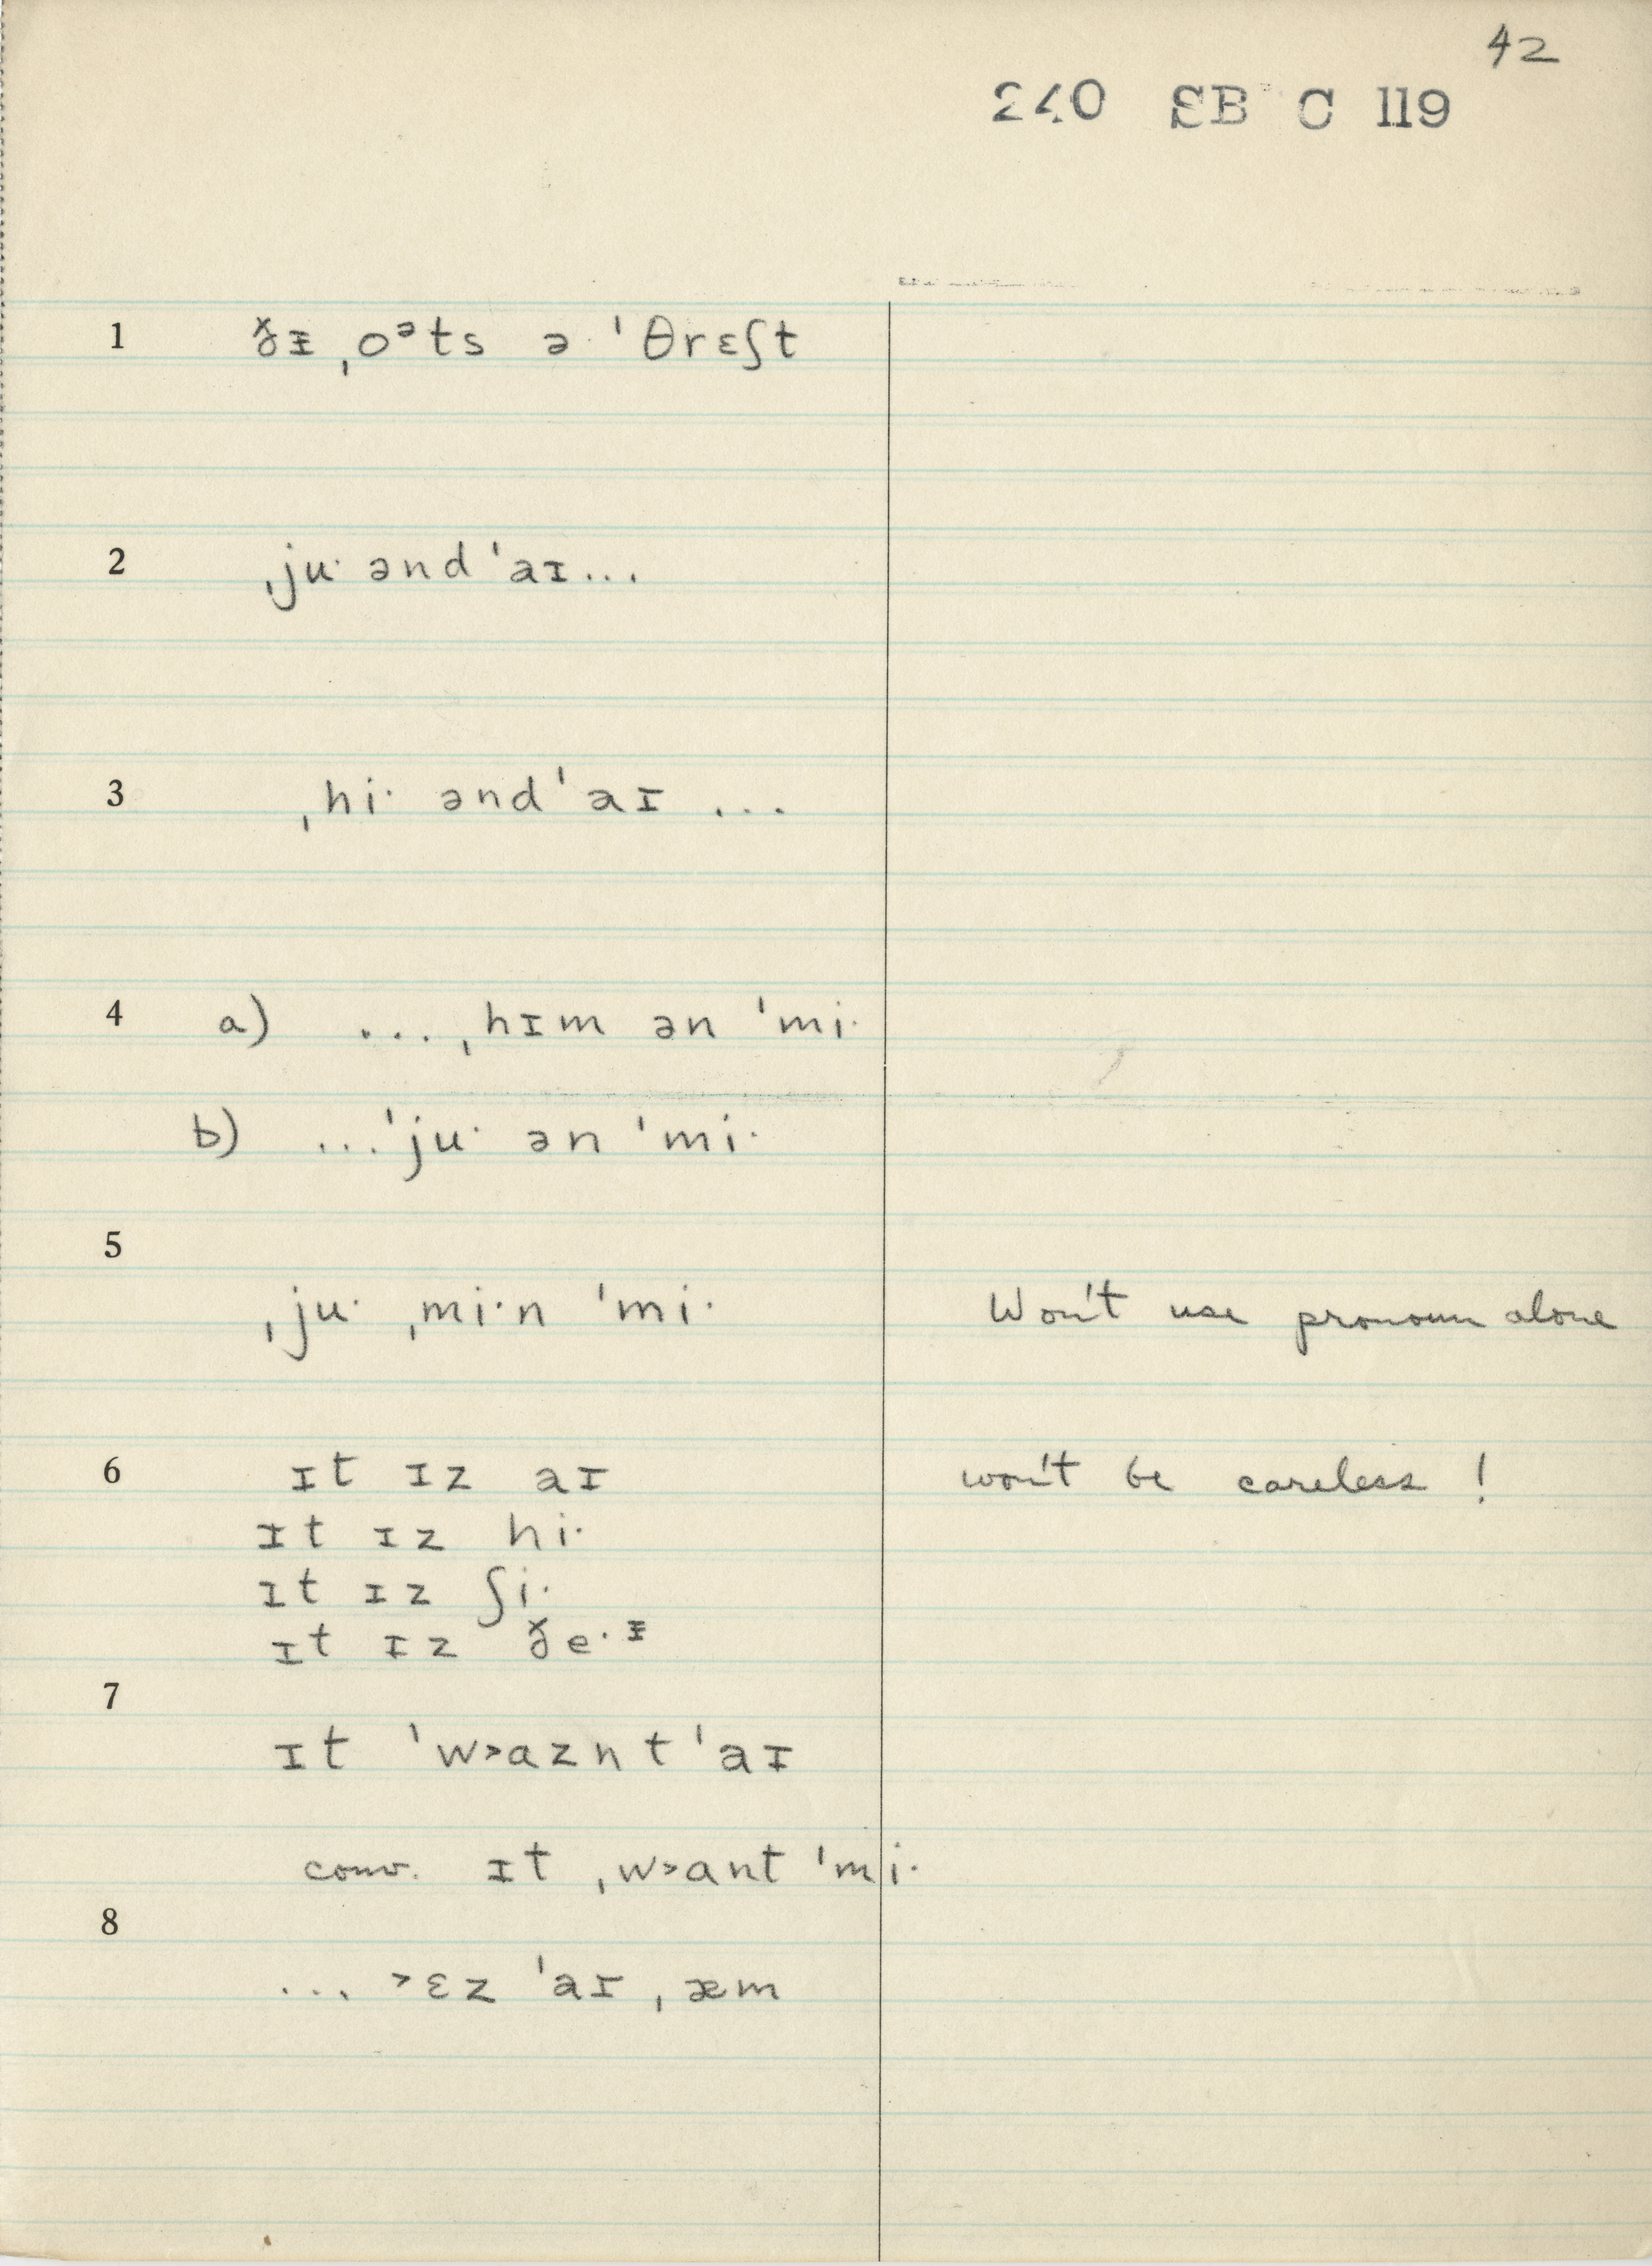 42
240 SB C 119
1 ðᵻ ˌoᵊts ə ˈθrɛʃt
2 ˌjuˑ ənd ˈaɪ...
3 ˌhiˑ ənd ˈaɪ ...
4 a) ... ˌhɪm ən ˈmiˑ
b) ...ˈjuˑ ən ˈmiˑ
5
ˌjuˑ ˌmiˑn ˈmiˑ Won't use pronoun alone
6 ɪt ɪz aɪ won't be careless !
ɪt ɪz hiˑ
ɪt ɪz ʃiˑ
ɪt ɪz ðeˑᵻ
7
ɪt ˈw˃ɑznt ˈaɪ
conv. ɪt ˌw˃ɑnt ˈmiˑ
8
... ˃ɛz ˈaɪ ˌæm